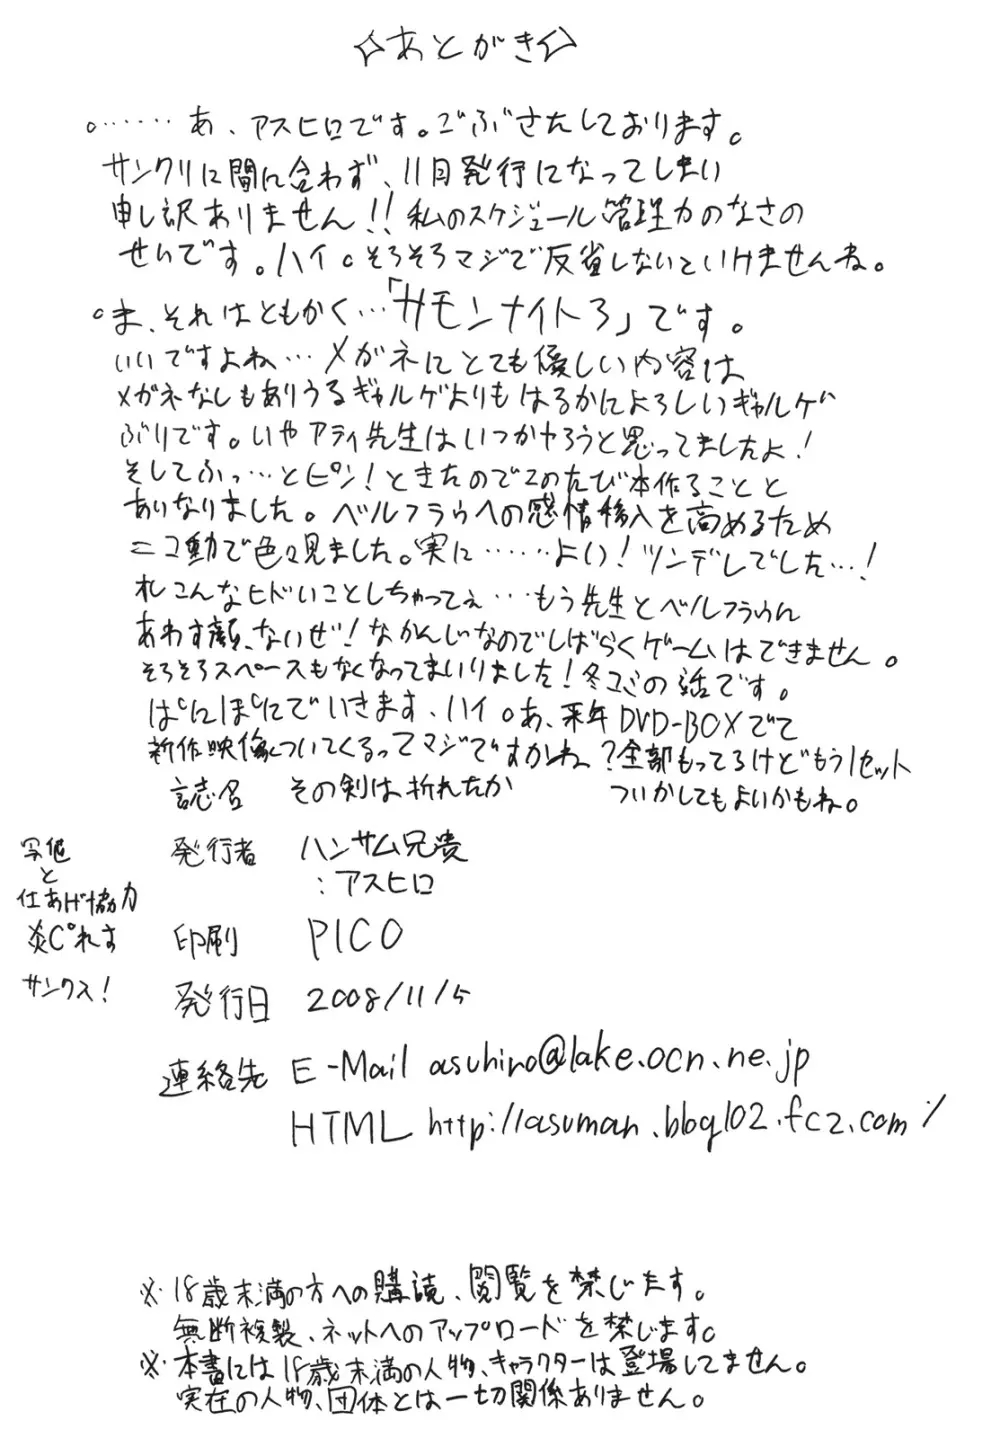 ☆あとがき☆
。…… あ、アスヒロです。ごぶさたしております。
サンクリに間に合わず、11月発行になってしまい
申し訳ありません!! 私のスケジュール管理力のなさの
せいです。ハイ。そろそろマジで反省しないといけませんね。
。ま、それはともかく…「サモンナイト3」です。
いいですよね… メガネにとても優しい内容は
メガネなしもありうるギャルゲよりもはるかによろしいギャルゲ
ぶりです。いやアティ先生はいつかやろうと思ってましたよ!
そしてふっ…とピン!ときたのでこのたび本作ることと
ありなりました。ベルフラウへの感情移入を高めるため
ニコ動で色々見ました。実に……よい!ツンデレでした…!
れこんなヒドいことしちゃってぇ…もう先生とベルフラウん
あわす顔、ないぜ!なかんじなのでしばらくゲームはできません。
そろそろスペースもなくなってまいりました!冬コミの話です。
ぱにぽにでいきます、ハイ。あ、来年DVD-BOXでて
新作映像ついてくるってマジですかね?全部もってるけどもう1セット
ついかしてもよいかもね。
誌名 その剣は折れたか
発行者 ハンサム兄貴
:アスヒロ
写植
と
仕あげ協力
炎ぴれす
サンクス!
印刷 PICO
発行日 2008/11/5
連絡先 E-Mail asuhiro@lake.ocn.ne.jp
HTML http://asuman.blog102.fc2.com/
※18歳未満の方への購読、閲覧を禁じます。
無断複製、ネットへのアップロードを禁じます。
※本書には18歳未満の人物、キャラクターは登場してません。
実在の人物、団体とは一切関係ありません。